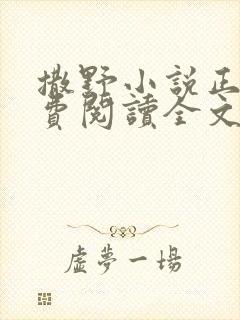 撒野小説正
費閱讀全文
虛夢一場